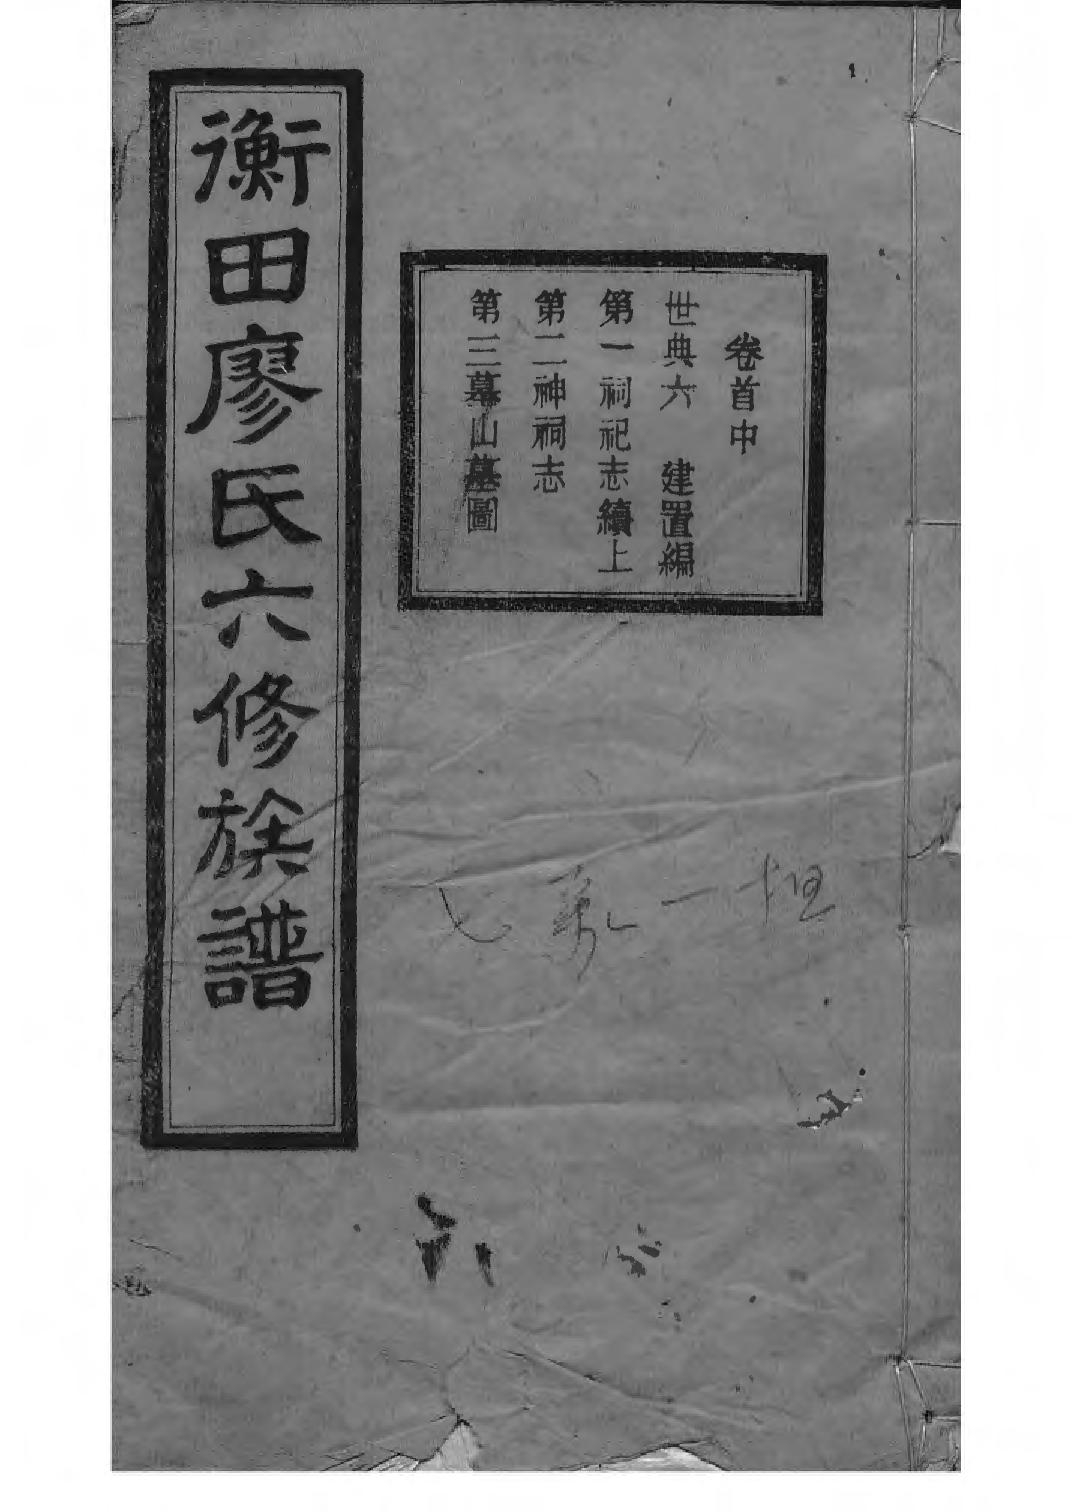 卷首中
世典六　建置編
第一祠祀志續上
第二神祠志
第三墓山墓圖
衡田廖氏六修族譜